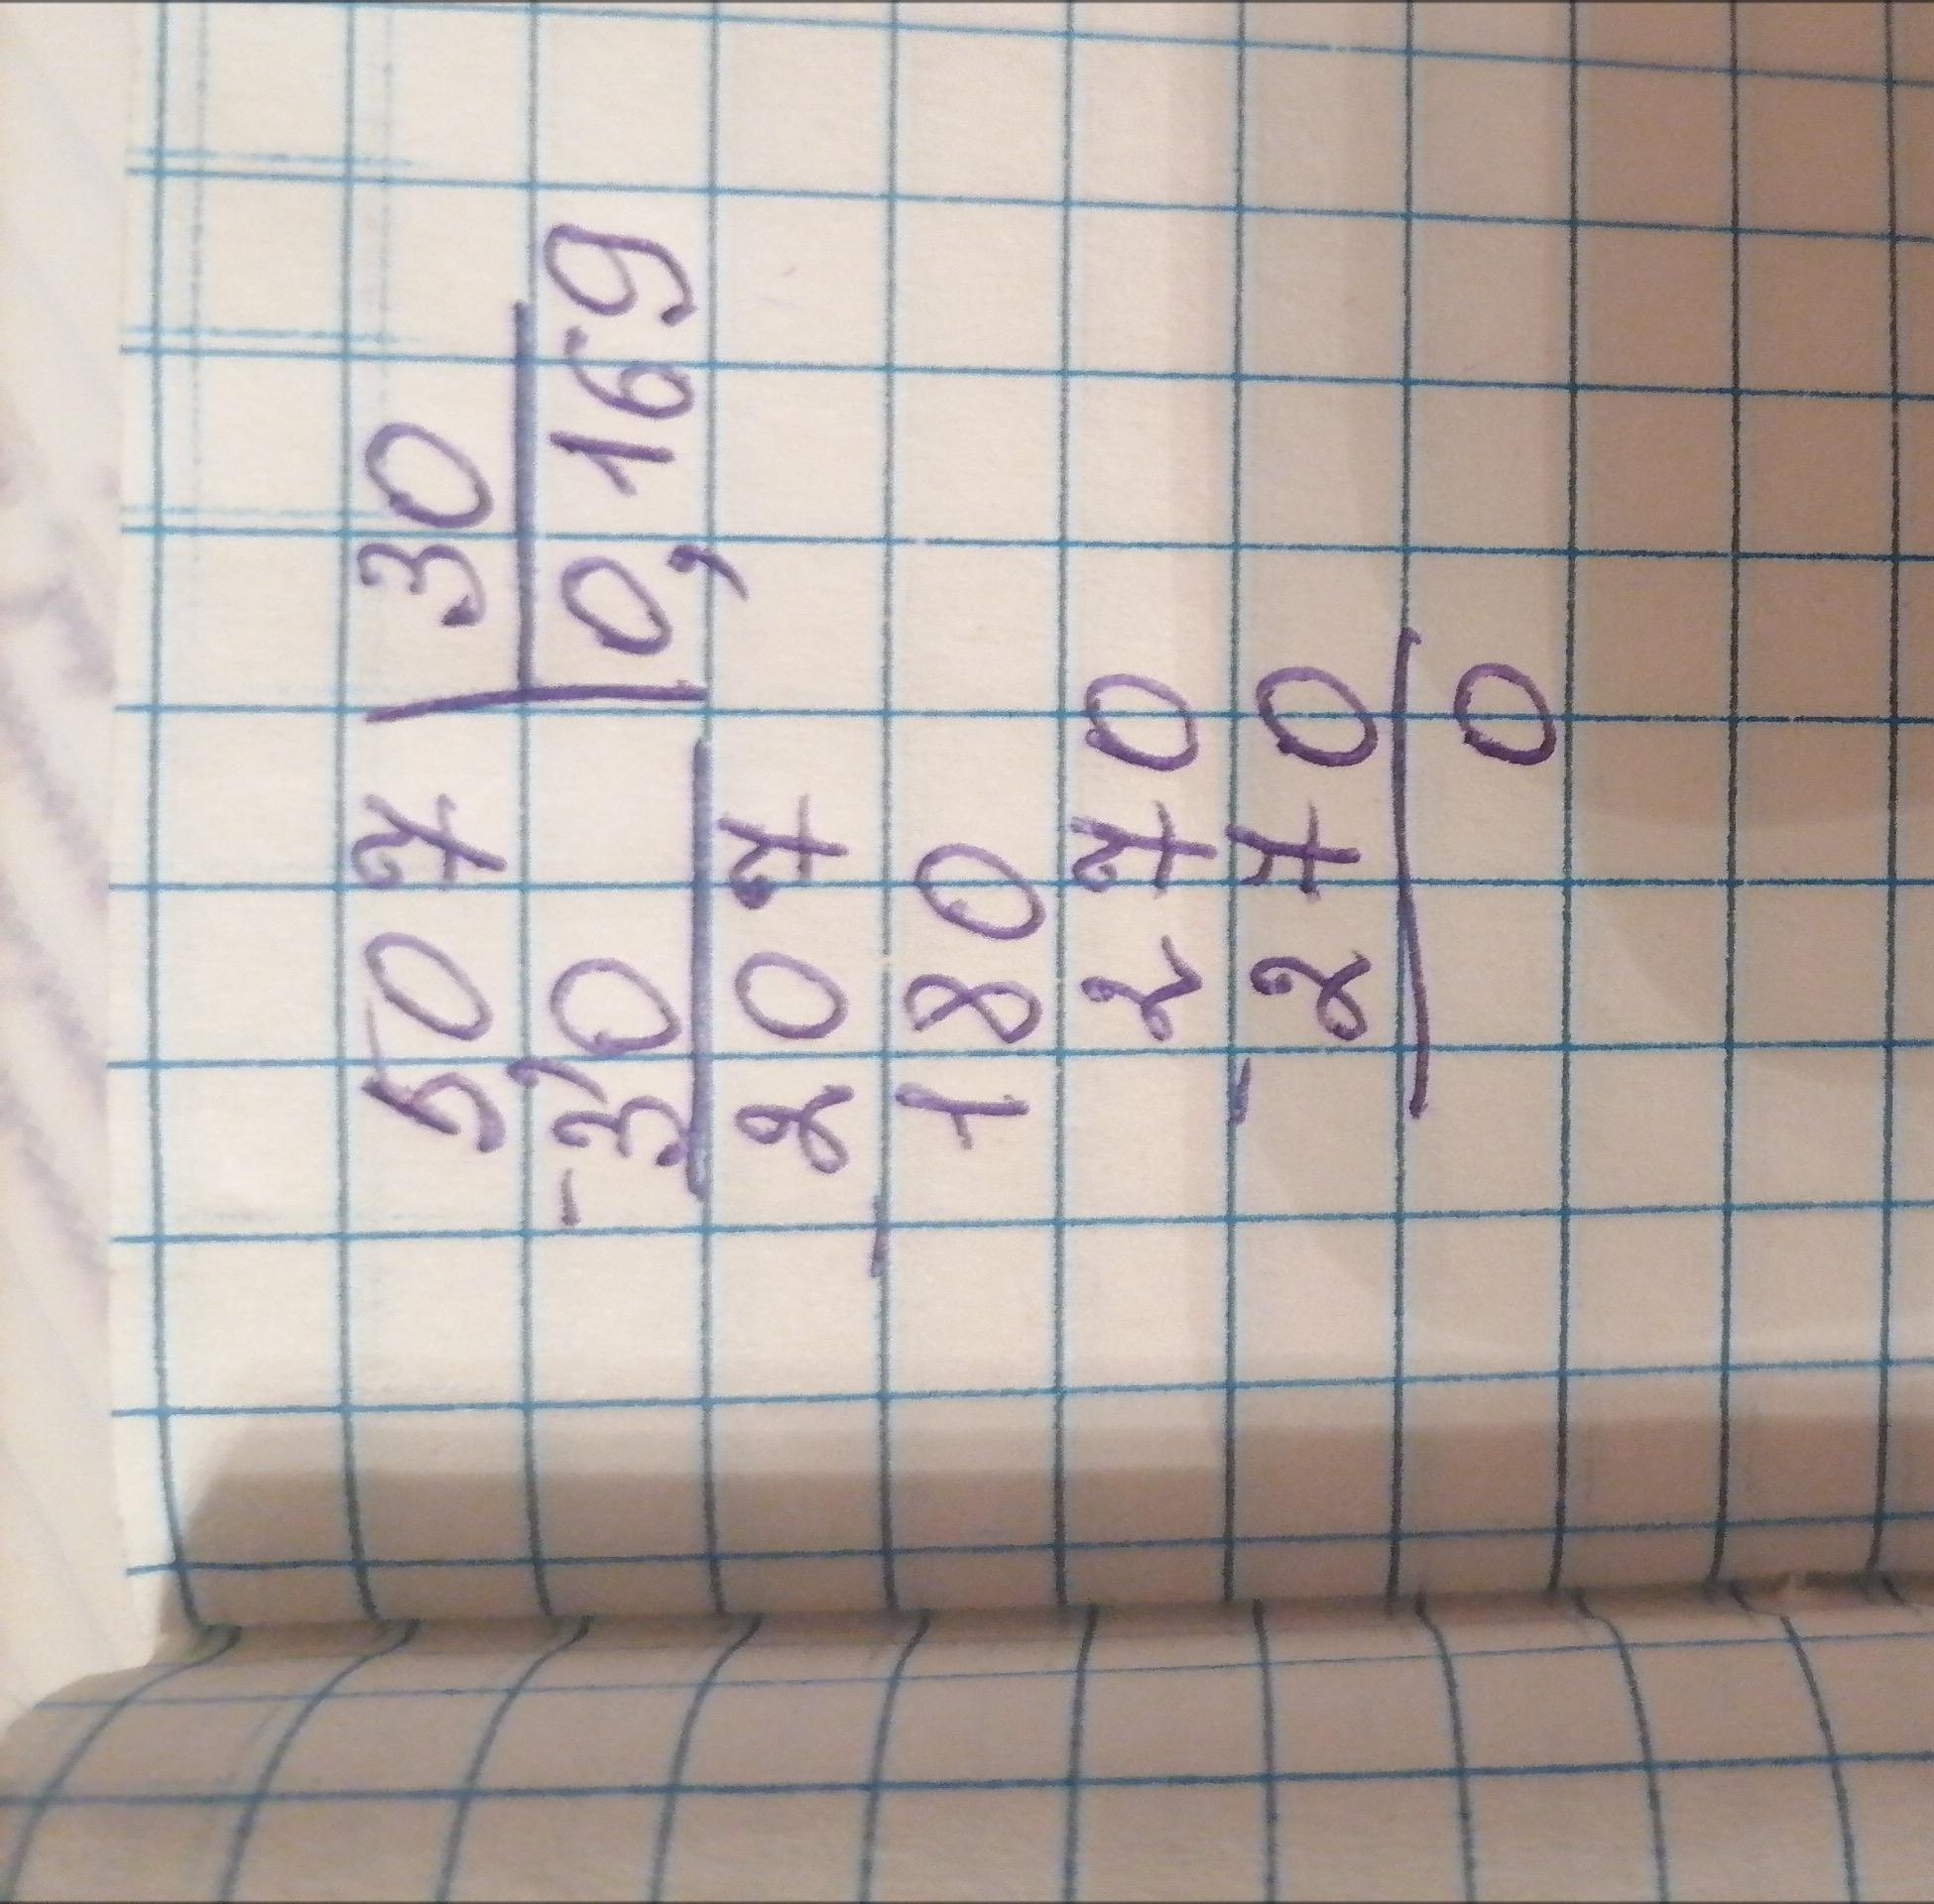 507 | 30
-30 | 0,169
207
- 180
270
- 270
0